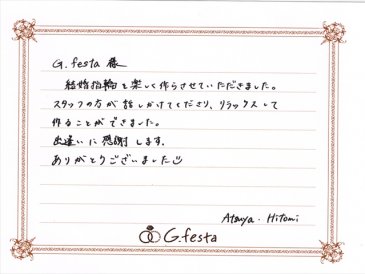 G.festa 様
結婚指輪を楽しく作らさせていただきました。
スタッフの方が話しかけてくださり、リラックスして
作ることができました。
出逢いに感謝します。
ありがとうございました
Atsuya・Hitomi
G.festa